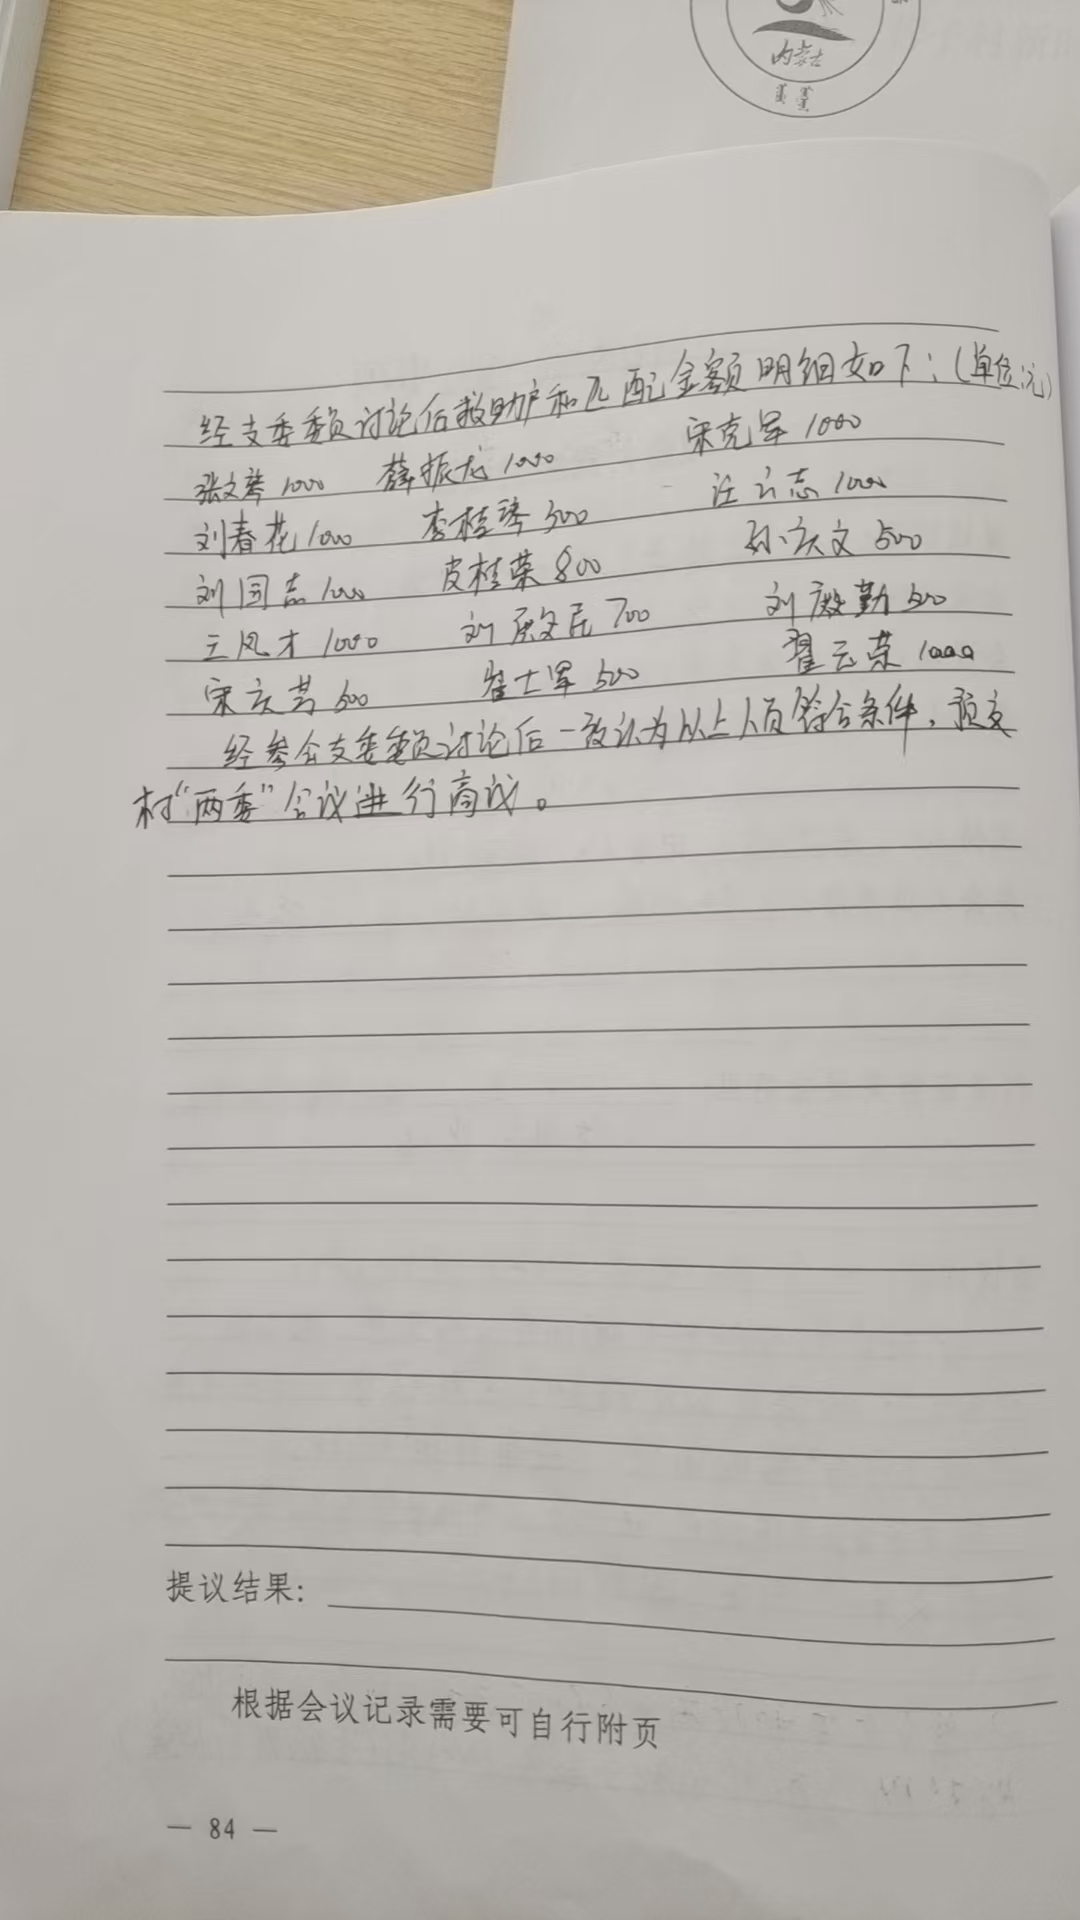 内蒙古
经支委委员讨论后救助户和匹配金额明细如下：(单位：元)
张文琴 1000 薛振龙 1000 宋克军 1000
刘春花 1000 李桂琴 500 汪云志 1000
刘国志 1000 皮桂荣 800 孙庆文 500
王凤才 1000 刘殿民 700 刘殿勤 500
宋庆芳 500 翟士军 500 翟云荣 1000
经参会支委委员讨论后一致认为以上人员符合条件，预交
村“两委”会议进行商议。
提议结果：
根据会议记录需要可自行附页
— 84 —